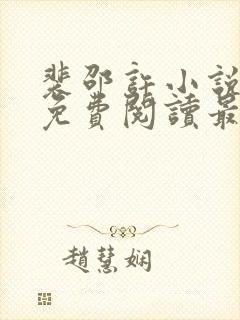 裴邵許小說
免費閱讀最
趙慧嫻